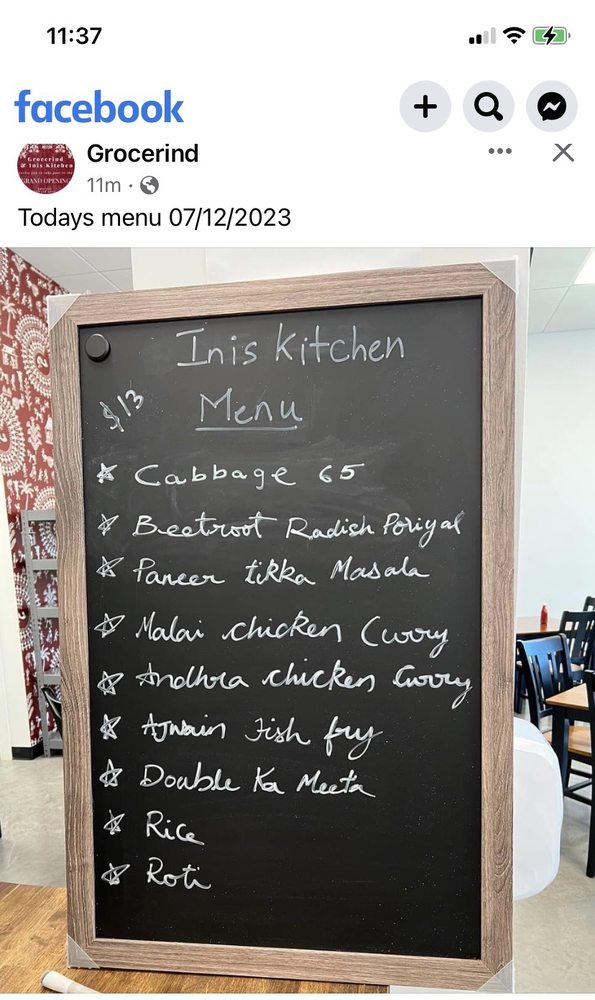 11:37
facebook
Grocerind
Grocerind
& Inis Kitchen
GRAND OPENING
11m ·
Todays menu 07/12/2023
Inis Kitchen
$13
Menu
Cabbage 65
Beetroot Radish Poriyal
Paneer tikka Masala
Malai chicken Curry
Andhra chicken Curry
Ajwain Fish fry
Double Ka Meeta
Rice
Roti